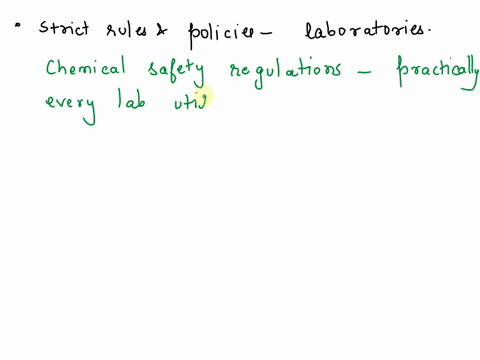 • Strict rules & policies - laboratories.
Chemical safety regulations - practically
every lab utis